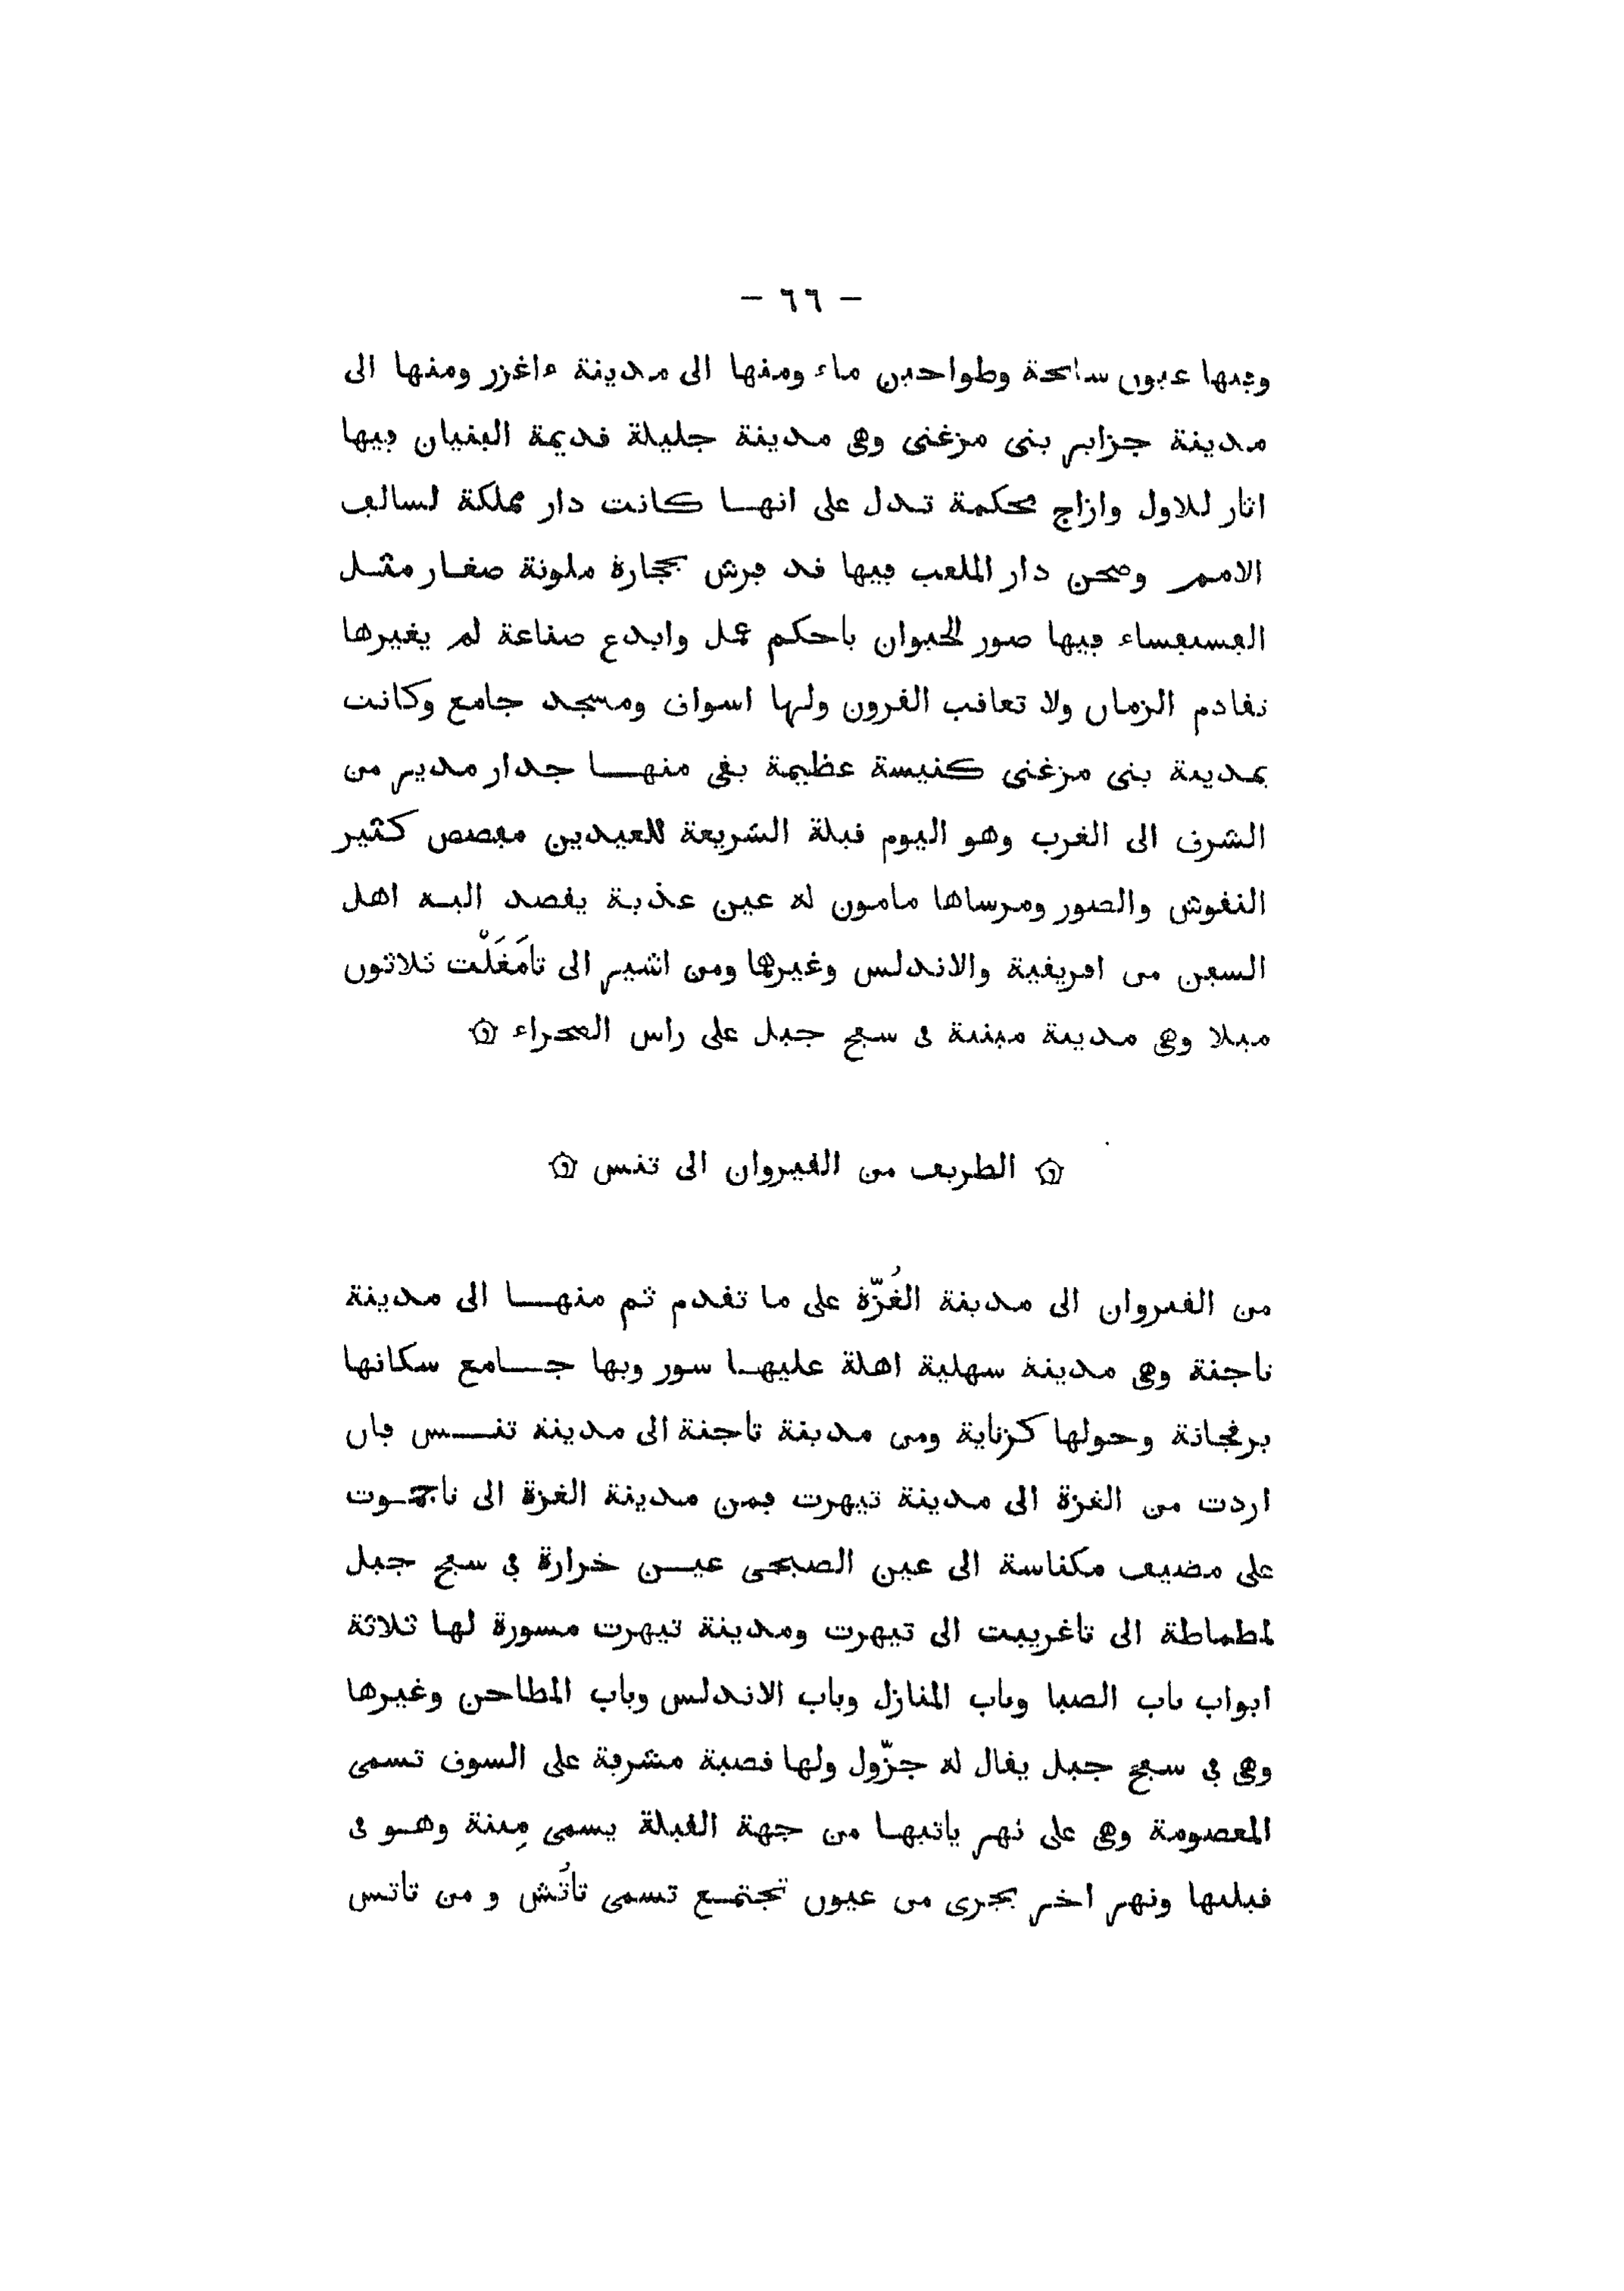 - ٦٦ -
وفيها عيون سايحة وطواحين ماء ومنها الى مدينة ءاغزر ومنها الى
مدينة جزاير بنى مزغنى وهى مدينة جليلة قديمة البنيان فيها
اثار للاول وازاج محكمة تدل على انها كانت دار مملكة لسالف
الامم وصحن دار الملعب فيها قد فرش بحجارة ملونة صغار مثل
الفسيفساء فيها صور الحيوان باحكم عمل وابدع صناعة لم يغيرها
تقادم الزمان ولا تعاقب القرون ولها اسواق ومسجد جامع وكانت
بمدينة بنى مزغنى كنيسة عظيمة بقى منها جدار مدير من
الشرق الى الغرب وهو اليوم قبلة الشريعة للعيدين مفصص كثير
النقوش والصور ومرساها مامون له عين عذبة يقصد اليه اهل
السفن من افريقية والاندلس وغيرها ومن اشير الى تامَغَلْت ثلاثون
ميلا وهى مدينة مبنية فى سفح جبل على راس الصحراء
الطريق من القيروان الى تنس
من القيروان الى مدينة الغُزّة على ما تقدم ثم منها الى مدينة
تاجنة وهى مدينة سهلية اهلة عليها سور وبها جامع سكانها
برقجانة وحولها كزناية ومن مدينة تاجنة الى مدينة تنس فان
اردت من الغزة الى مدينة تيهرت فمن مدينة الغزة الى تاجموت
على مضيق مكناسة الى عين الصبحى عين خرارة فى سفح جبل
لمطماطة الى تاغريبت الى تيهرت ومدينة تيهرت مسورة لها ثلاثة
ابواب باب الصبا وباب المنازل وباب الاندلس وباب المطاحن وغيرها
وهى فى سفح جبل يقال له جزّول ولها قصبة مشرفة على السوق تسمى
المعصومة وهى على نهر ياتيها من جهة القبلة يسمى مِينة وهو فى
قبليها ونهر اخر يجرى من عيون تجتمع تسمى تاتُش و من تاتس